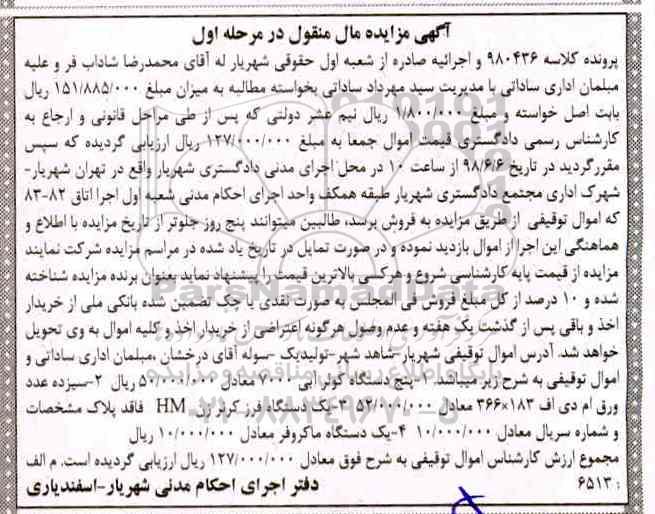 آگهی مزایده مال منقول در مرحله اول
پرونده کلاسه ۹۸۰۴۳۶ و اجرائیه صادره از شعبه اول حقوقی شهریار له آقای محمدرضا شاداب فر و علیه
مبلمان اداری ساداتی با مدیریت سید مهرداد ساداتی بخواسته مطالبه به میزان مبلغ ۱۵۱/۸۸۵/۰۰۰ ریال
بابت اصل خواسته و مبلغ ۱/۸۰۰/۰۰۰ ریال نیم عشر دولتی که پس از طی مراحل قانونی و ارجاع به
کارشناس رسمی دادگستری قیمت اموال جمعا به مبلغ ۱۲۷/۰۰۰/۰۰۰ ریال ارزیابی گردیده که سپس
مقررگردید در تاریخ ۹۸/۶/۶ از ساعت ۱۰ در محل اجرای مدنی دادگستری شهریار واقع در تهران شهریار-
شهرک اداری مجتمع دادگستری شهریار طبقه همکف واحد اجرای احکام مدنی شعبه اول اجرا اتاق ۸۲-۸۳
که اموال توقیفی از طریق مزایده به فروش برسد، طالبین میتوانند پنج روز جلوتر از تاریخ مزایده با اطلاع و
هماهنگی این اجرا از اموال بازدید نموده و در صورت تمایل در تاریخ یاد شده در مراسم مزایده شرکت نمایند
مزایده از قیمت پایه کارشناسی شروع و هرکسی بالاترین قیمت را پیشنهاد نماید بعنوان برنده مزایده شناخته
شده و ۱۰ درصد از کل مبلغ فروش فی المجلس به صورت نقدی یا چک تضمین شده بانکی ملی از خریدار
اخذ و باقی پس از گذشت یک هفته و عدم وصول هرگونه اعتراضی از خریدار اخذ و کلیه اموال به وی تحویل
خواهد شد. آدرس اموال توقیفی شهریار-شاهد شهر-تولیدیک -سوله آقای درخشان ،مبلمان اداری ساداتی و
اموال توقیفی به شرح زیر میباشد. ۱-پنج دستگاه کولر آبی ۷۰۰۰ معادل ۵۰/۰۰۰/۰۰۰ ریال ۲-سیزده عدد
ورق ام دی اف ۱۸۳×۳۶۶ معادل ۵۲/۰۰۰/۰۰۰ ۳-یک دستگاه فرز کرنر زن HM فاقد پلاک مشخصات
و شماره سریال معادل ۱۰/۰۰۰/۰۰۰ ۴-یک دستگاه ماکروفر معادل ۱۰/۰۰۰/۰۰۰ ریال
مجموع ارزش کارشناس اموال توقیفی به شرح فوق معادل ۱۲۷/۰۰۰/۰۰۰ ریال ارزیابی گردیده است. م الف
: ۶۵۱۳ دفتر اجرای احکام مدنی شهریار-اسفندیاری
ParsNamadData
پایگاه اطلاع رسانی مناقصه و مزایده
۰۲۱-۸۸۳۴۹۶۷۰-۵